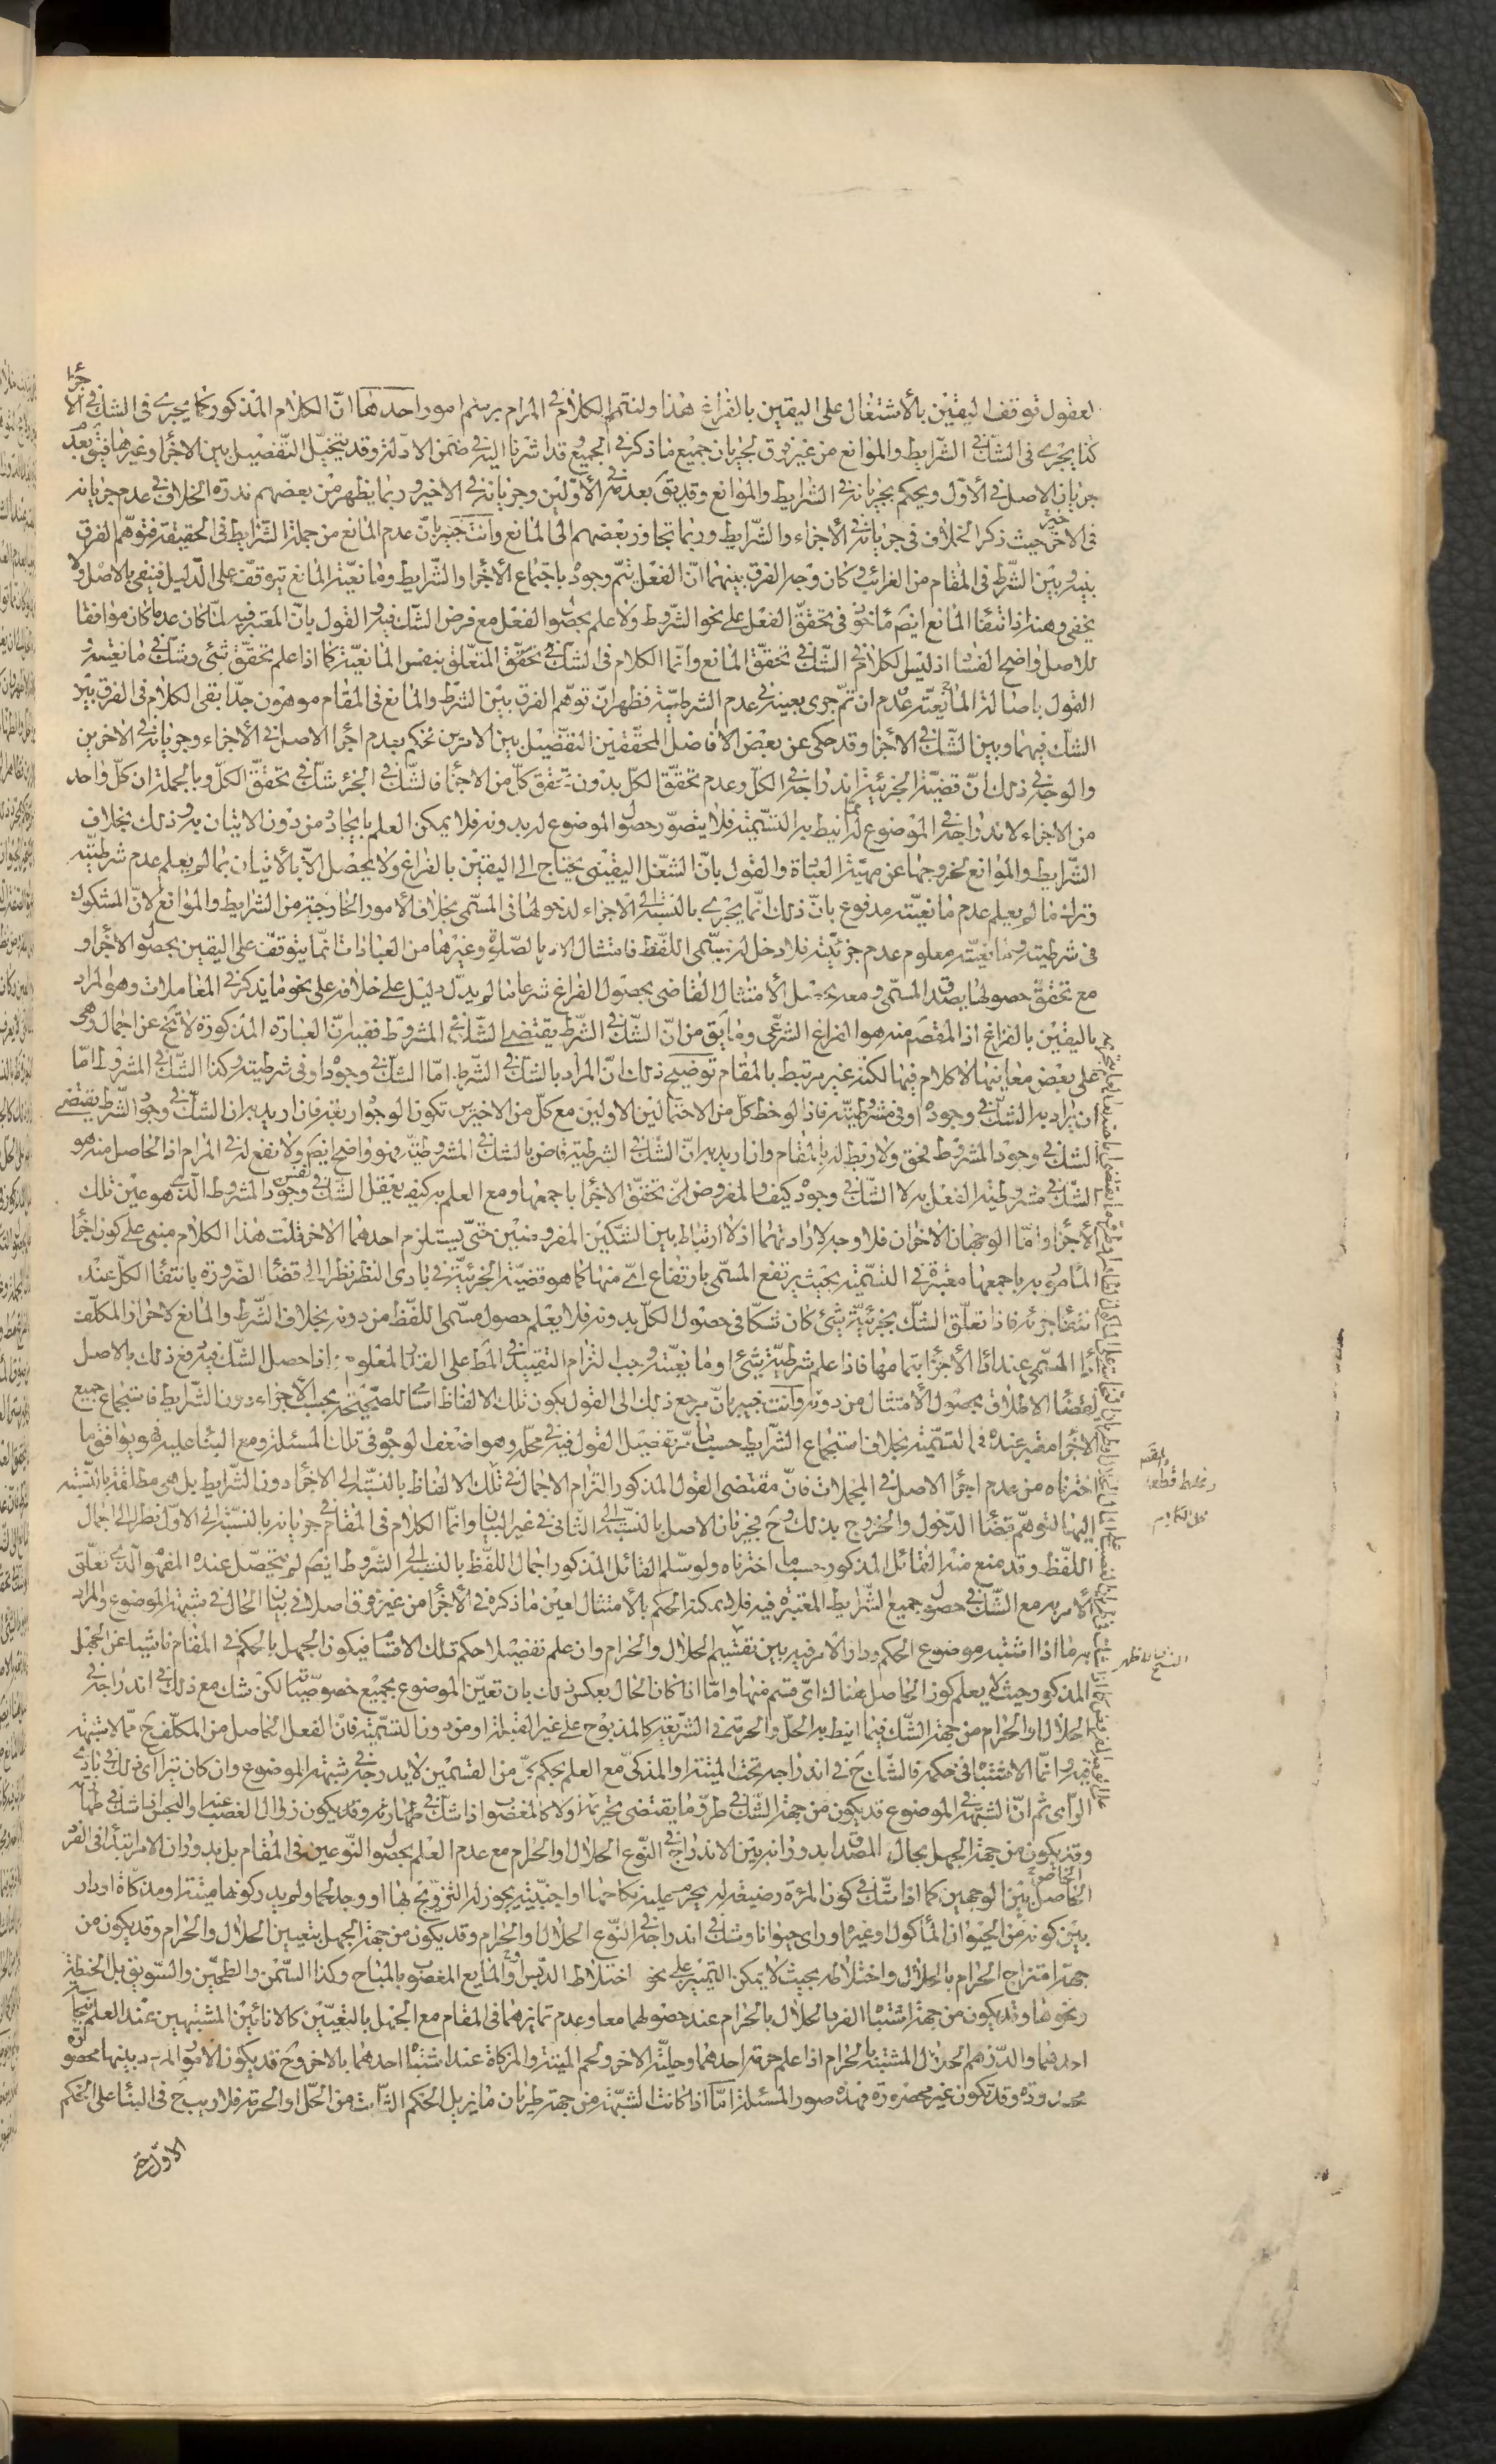 العقول توقف اليقين بالأشتغال على اليقين بالفراغ هذا ولنتمم الكلام في المرام برسم امور احدها انّ الكلام المذكور كما يجرى فى الشك في الاجزاء
كذا يجرى فى الشك في الشرايط والموانع من غير فرق لجريان جميع ما ذكر في الجميع وقد اشرنا اليه في ضمن الادلة وقد يتخيّل التفصيل بين الاجزاء وغيرها فيق بعدم
جريان الاصل في الأوّل ويحكم بجريانه في الشرايط والموانع وقد يق بعدمه في الأوّلين وجريانه في الاخير وربما يظهر من بعضهم ندرة الخلاف في عدم جريانه
فى الاخير حيث ذكر الخلاف فى جريانه في الأجزاء والشرايط وربما تجاوز بعضهم الى المانع وانت خبير بانّ عدم المانع من جملة الشرايط فى الحقيقة فتوهّم الفرق
بينه وبين الشرط فى المقام من الغرائب وكان وجه الفرق بينهما انّ الفعل يتم وجوده باجتماع الأجزاء والشرايط ومانعيّة المانع يتوقف على الدليل فينفى بالاصل ولا
يخفى وهنه اذ انتفاء المانع ايضً مأخوذ فى تحقق الفعل على نحو الشروط ولا علم بحصول الفعل مع فرض الشك فيه والقول بانّ المعتبر فيه لمّا كان عدميا كان موافقا
للاصل واضح الفساد اذ ليس الكلام في الشك في تحقق المانع وانّما الكلام فى الشك في تحقّق المتعلّق بنفس المانعيّة كما اذا علم تحقّق شئ وشك في مانعيّته و
القول باصالة عدم المانعيّة ان تمّ جرى بعينه في عدم الشرطيّة فظهر انّ توهّم الفرق بين الشرط والمانع فى المقام موهون جدّا بقى الكلام فى الفرق بين
الشك فيهما وبين الشك في الاجزاء وقد حكى عن بعض الافاضل المحققين التفصيل بين الامرين فحكم بعدم اجراء الاصل في الأجزاء وجريانه في الاخرين
والوجه في ذلك انّ قضيّة الجزئية اندراجه في الكلّ وعدم تحقّق الكلّ بدون تحقق كلّ من الاجزاء فالشك في الجزء شك في تحقّق الكلّ وبالجملة ان كلّ واحد
من الاجزاء لاندراجه في الموضوع له مما انيط به التسمية فلا يتصوّر حصول الموضوع له بدونه فلا يمكن العلم بايجاده من دون الاتيان به وذلك بخلاف
الشرايط والموانع لخروجها عن مهيّة العبادة والقول بانّ الشغل اليقينى يحتاج الى اليقين بالفراغ ولا يحصل الاّ بالأتيان بما لم يعلم عدم شرطيّته
وترك ما لم يعلم عدم مانعيّته مدفوع بانّ ذلك انّما يجرى بالنسبة الى الأجزاء لدخولها فى المسمّى بخلاف الأمور الخارجة من الشرايط والموانع لانّ المشكوك
فى شرطيته ومانعيّته معلوم عدم جزئيّته فلا دخل له في مسمّى اللفظ فامتثال الامر بالصلوة وغيرها من العبادات انّما يتوقف على اليقين بحصول الاجزاء و
مع تحقق حصولها يصدق المسمّى ومعه يحصل الأمتثال القاضى بحصول الفراغ شرعا ما لم يدلّ دليل على خلافه على نحو ما يذكر في المعاملات وهو المراد
باليقين بالفراغ اذ المقصَم منه هو الفراغ الشرعى وما يق من انّ الشك في الشرط يقتضى الشك في المشروط ففيه انّ العبارة المذكورة لا تخ عن اجمال وهى
على بعض معانيها لا كلام فيها لكنه غير مرتبط بالمقام توضيح ذلك انّ المراد بالشك في الشرط امّا الشك في وجوده او فى شرطيته وكذا الشك في المشروط امّا
ان يراد به الشك في وجوده او فى مشروطيّته فاذا لوحظ كل من الاحتمالين الاولين مع كلّ من الاخيرين تكون الوجوه اربعة فان اريد به ان الشك في وجود الشرط يقتضى
الشك في وجود المشروط فحق ولا ربط له بالمقام وان اريد به انّ الشك في الشرطية قاض بالشك في المشروطيّة فهو واضح ايضً ولا نفع له في المرام اذ الحاصل منه هو
الشك في مشروطية الفعل به لا الشك في وجوده كيف والمفروض انّ تحقّق الاجزاء باجمعها ومع العلم به كيف يعقل الشك في وجود نفس المشروط الّذى هو عين تلك
الأجزاء وامّا الوجهان الاخران فلا وجه لارادتهما اذ لا ارتباط بين الشكين المفروضين حتى يستلزم احدهما الاخر قلت هذا الكلام مبنى على كون اجزاء
المأمور به باجمعها معتبرة فى التسمية بحيث يرتفع المسمّى بارتفاع اىّ منها كما هو قضيّة الجزئيّة في بادى النظر نظرا الى قضاء الضرورة بانتفاء الكلّ عند
انتفاء جزئه فاذا تعلّق الشك بجزئيّة شئ كان شكّا فى حصول الكلّ بدونه فلا يعلم حصول مسمّى اللفظ من دونه بخلاف الشرط والمانع لاحراز المكلّف
أداء المسمى عند اداء الأجزاء بتمامها فاذا علم شرطيّة شئ او مانعيّته وجب التزام التقييد في المط على القدر المعلوم اذا حصل الشك فيه رفع ذلك بالاصل
لقضاء الاطلاق بحصول الأمتثال من دونه وانت خبير بانّ مرجع ذلك الى القول بكون تلك الالفاظ اسامى للصحيحة بحسب الاجزاء دون الشرايط فاستجماع جميع
الأجزاء معتبر عنده فى التسمية بخلاف استجماع الشرايط حسبما مرّ تفصيل القول فيه في محلّه وهو اضعف الوجوه فى تلك المسئلة ومع البناء عليه فهو يوافق ما
اخترناه من عدم اجراء الاصل في المجملات فانّ مقتضى القول المذكور التزام الاجمال في تلك الالفاظ بالنسبة الى الاجزاء دون الشرايط بل هى مطلقة بالنسبة
اليها لتوهّم قضاء الدخول والخروج بذلك وح فجريان الاصل بالنسبة الى الثانى فى غير البيان وانّما الكلام فى المقام في جريانه بالنسبة الى الاوّل نظرا الى اجمال
اللفظ وقد منع منه القائل المذكور حسبما اخترناه ولو سلّم القائل المذكور اجمال اللفظ بالنسبة الى الشروط ايضً لم يتحصّل عنده المفهوم الذى تعلّق
الأمر به مع الشك في حصول جميع الشرايط المعتبرة فيه فلا يمكنه الحكم بالأمتثال لعين ما ذكره في الأجزاء من غير فرق اصلا في بيان الحال فى شبهة الموضوع والمراد
به ما اذا اشتبه موضوع الحكم ودار الأمر فيه بين تقسيم الحلال والحرام وان علم تفصيل احكام تلك الاقسام فيكون الجهل بالحكم في المقام ناشيا عن الجهل
المذكور حيث لا يعلم كون الحاصل هناك اىّ قسم منها وامّا اذا كان الحال بعكس ذلك بان تعيّن الموضوع بجميع خصوصيّاته لكن شك مع ذلك في اندراجه في
الحلال او الحرام من جهة الشك فيما انيط به الحلّ والحرمة فى الشريعة كالمذبوح على غير القبلة او من دون التسمية فانّ الفعل الحاصل من المكلّف ح ممّا لا شبهة
فيه وانّما الاشتباه فى حكمه فالشك ح فى اندراجه تحت الميتة او المذكى مع العلم بحكم كلّ من القسمين لا يدرجه في شبهة الموضوع وان كان يترآى ذلك في بادى
الرأى ثم انّ الشبهة في الموضوع قد يكون من جهة الشك في طروّ ما يقتضى تحريمه اولا كالمغصوب اذا شك في طهارته وقد يكون زوال الغصب عنه او النجس اذا شك في طهارته
وقد يكون من جهة الجهل بحال المصداق بدورانه بين الاندراج في النوع الحلال او الحرام مع عدم العلم بحصول النوعين فى المقام بل بدوران الامر ابتداء فى الفرد
الخاص الحاصل بين الوجهين كما اذا شك في كون المرئة رضيعة له يحرم عليه نكاحها او اجنبيّة يجوز له التزويج بها او وجد لحما ولم يدر كونها ميتة او مذكاة او دار
بين كونه من الحيوان المأكول او غيره او راى حيوانا وشك في اندراجه في النوع الحلال او الحرام وقد يكون من جهة الجهل بتعيين الحلال والحرام وقد يكون من
جهة امتزاج الحرام بالحلال واختلاطه بحيث لا يمكن التميز على نحو اختلاط الدبس او المايع المغصوب بالمباح وكذا السمن والطحين والسويق بل الحنطة
ونحوها وقد يكون من جهة اشتباه الفرد الحلال بالحرام عند حصولهما معا وعدم تمايزهما فى المقام مع الجهل بالتعيين كالانائين المشتبهين عند العلم بنجاسة
احدهما والدرهم الحلال المشتبه بالحرام اذا علم حرمة احدهما وحليّة الاخر ولحم الميتة والمذكاة عند اشتباه احدهما بالاخر وح قد يكون الامور المردد بينها محصورة
محدودة وقد تكون غير محصورة فهذه صور المسئلة امّا اذا كانت الشبهة من جهة طريان ما يزيل الحكم الثابت من الحلّ او الحرمة فلا ريب ح فى البناء على الحكم
الاوّل ح